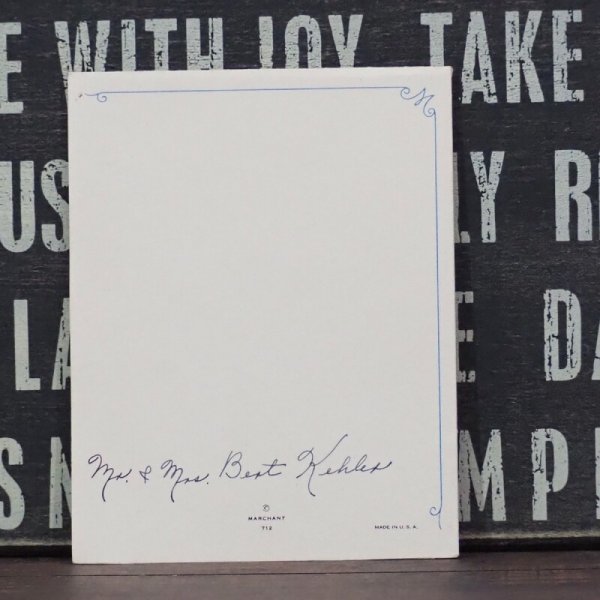 E WITH JOY TAKE
US LY R
LA E DA
S MP
M
Mr. & Mrs. Bert Kehler
©
MARCHANT
712
MADE IN U.S.A.